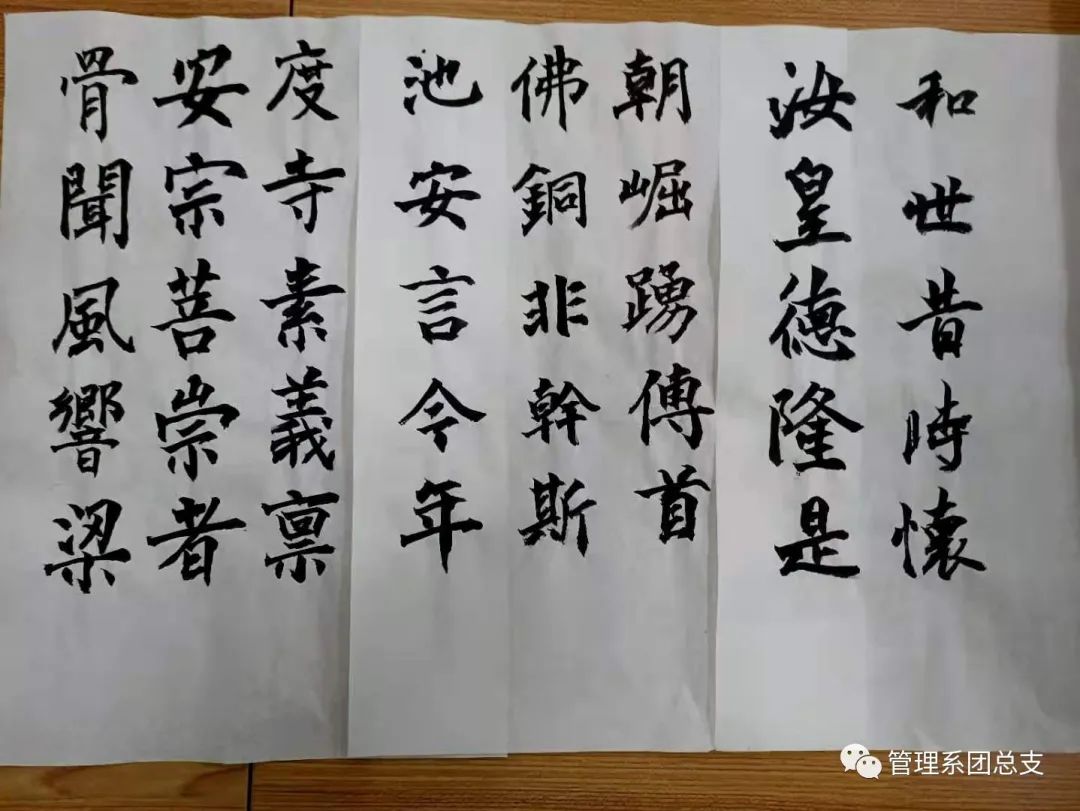 和世昔時懷
汝皇德隆是
朝崛踴傅首
佛銅非幹斯
池安言今年
度寺素義禀
安宗菩崇者
骨聞風響梁
管理系团总支